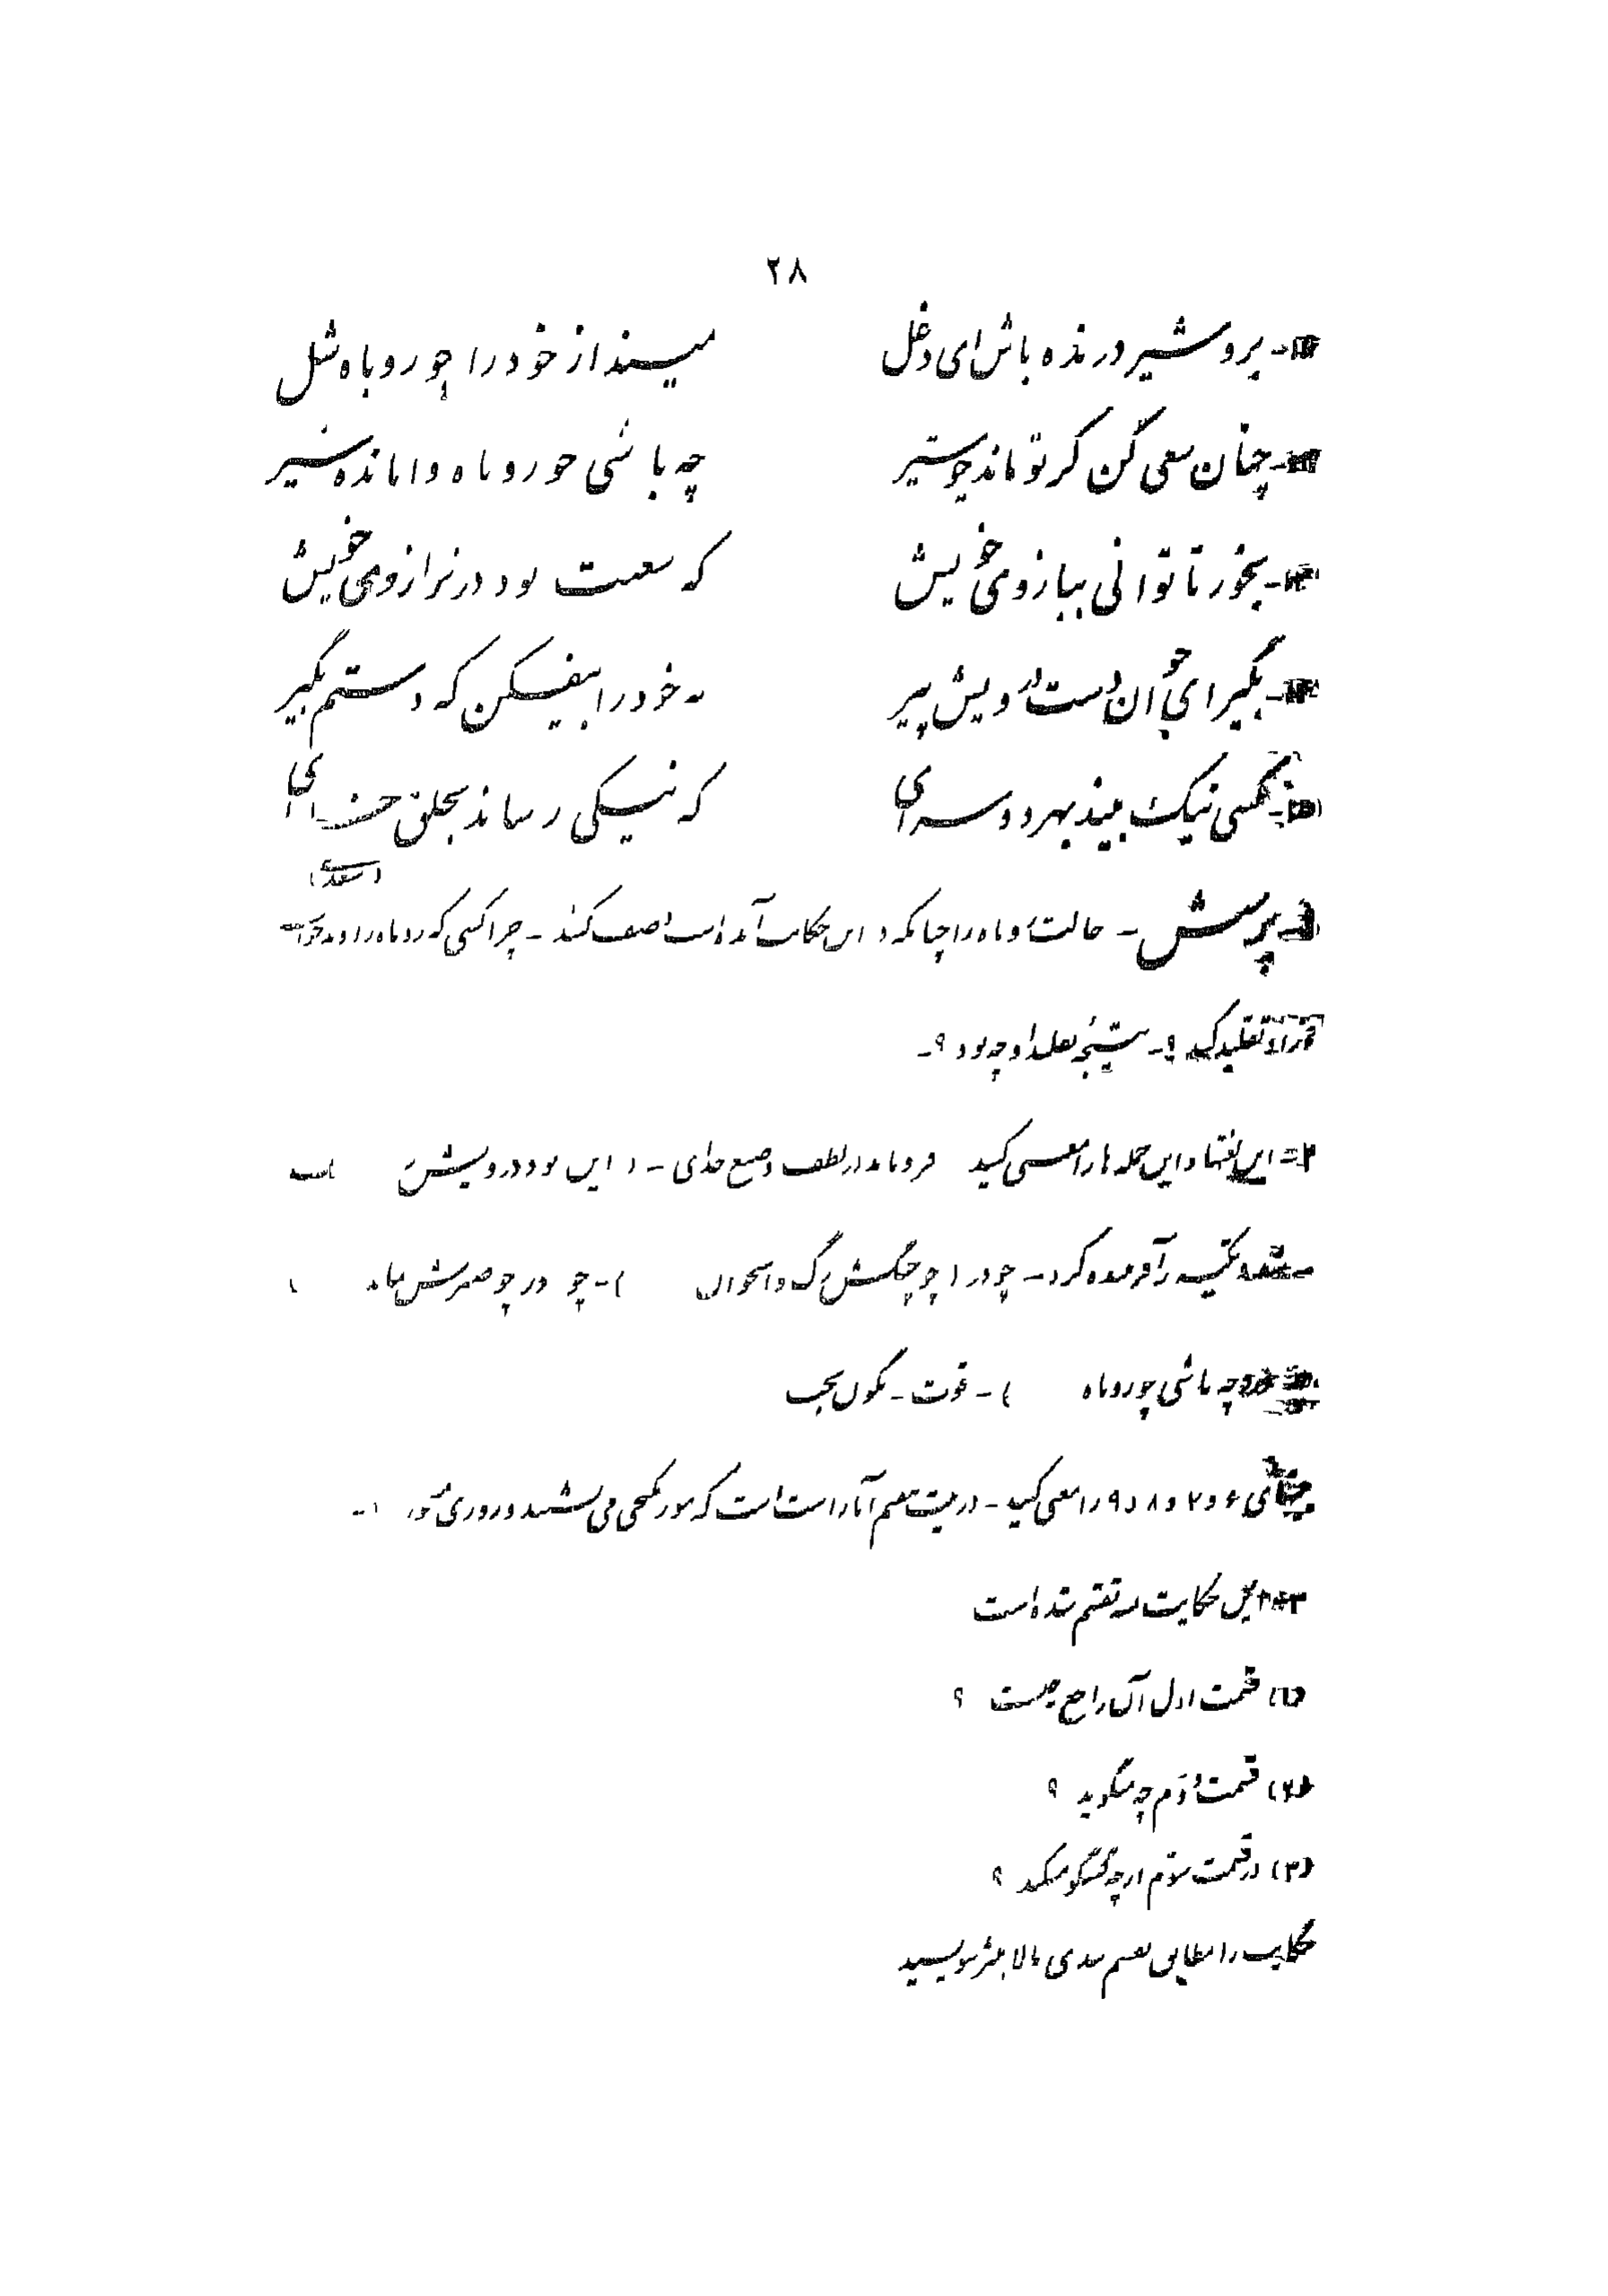 ۲۸
برو شیر درنده باش ای دغل میـنداز خود را چو روباه شل
چنان سعی کن کز تو ماند چو شیر چه باشی چو روباه وامانده سیر
بخور تا توانی ببازوی خویش که سعیت بود در ترازوی خویش
بگیر ای جوان دست درویش پیر نه خود را بیفکن که دستم بگیر
کسی نیک بیند بهر دو سرای که نیکی رساند بخلق خدای
(سعدی)
پرسش - حالت روباه را چنانکه در این حکایت آمده است وصف کنید - چرا کسی که روباه را دید خواست
تقلید کند ؟ - نتیجهٔ تقلید او چه بود ؟ -
۲ - این لغتها و این جمله‌ها را معنی کنید فرو ماند در لطف و صنع خدای - در این بود درویش
تکیه بر آفریننده کرد - چو در (چو چنگش رگ و استخوان ) - چو در چو صبرش نماند
چه باشی چو روباه ) - قوت - نگون بخت
۶ و ۷ و ۸ و ۹ را معنی کنید - در بیت است که مور بکنجی می‌نشیند و روزی
۳ - این حکایت به تقسیم شده است
(۱) قسمت اول آن راجع بچیست ؟
(۲) قسمت دوم چه میگوید ؟
(۳) در قسمت سوم از چه گفتگو میکند ؟
حکایت را مطابق تقسیم بندی بالا بنثر بنویسید